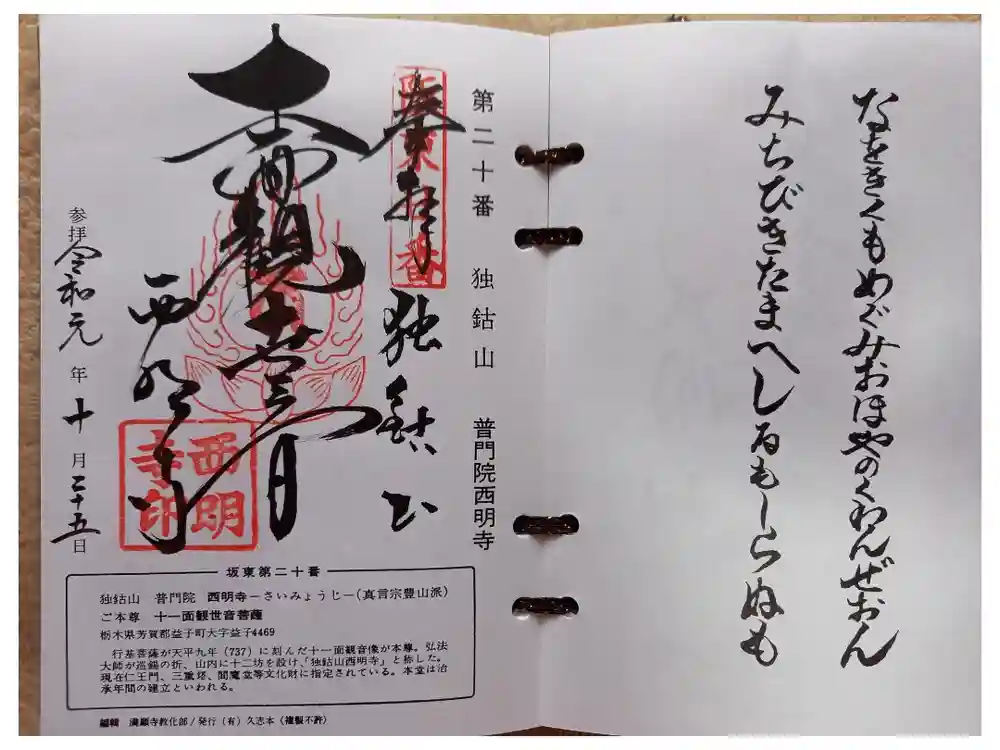 なをきくもめぐみおほやのくわんぜおん
みちびきたまへしるもしらぬも
第二十番 独鈷山 普門院西明寺
奉拝
独鈷山
十一面観世音
西明寺
西明寺印
参拝令和元年十月二十五日
坂東第二十番
独鈷山 普門院 西明寺－さいみょうじ－(真言宗豊山派)
ご本尊 十一面観世音菩薩
栃木県芳賀郡益子町大字益子4469
行基菩薩が天平九年（737）に刻んだ十一面観音像が本尊。弘法
大師が巡錫の折、山内に十二坊を設け、「独鈷山西明寺」と称した。
現在仁王門、三重塔、閻魔堂等文化財に指定されている。本堂は治
承年間の建立といわれる。
編輯 満願寺教化部／発行（有）久志本（複製不許）